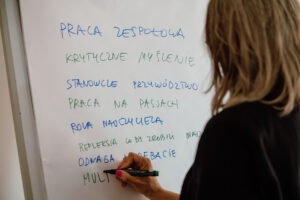 PRACA ZESPOŁOWA
KRYTYCZNE MYŚLENIE
STANOWCZE PRZYWÓDZTWO
PRACA NA PASJACH
ROLA NAUCZYCIELA
REFLEKSJA CO ZROBIŁEM
ODWAGA DEBACIE
MULT